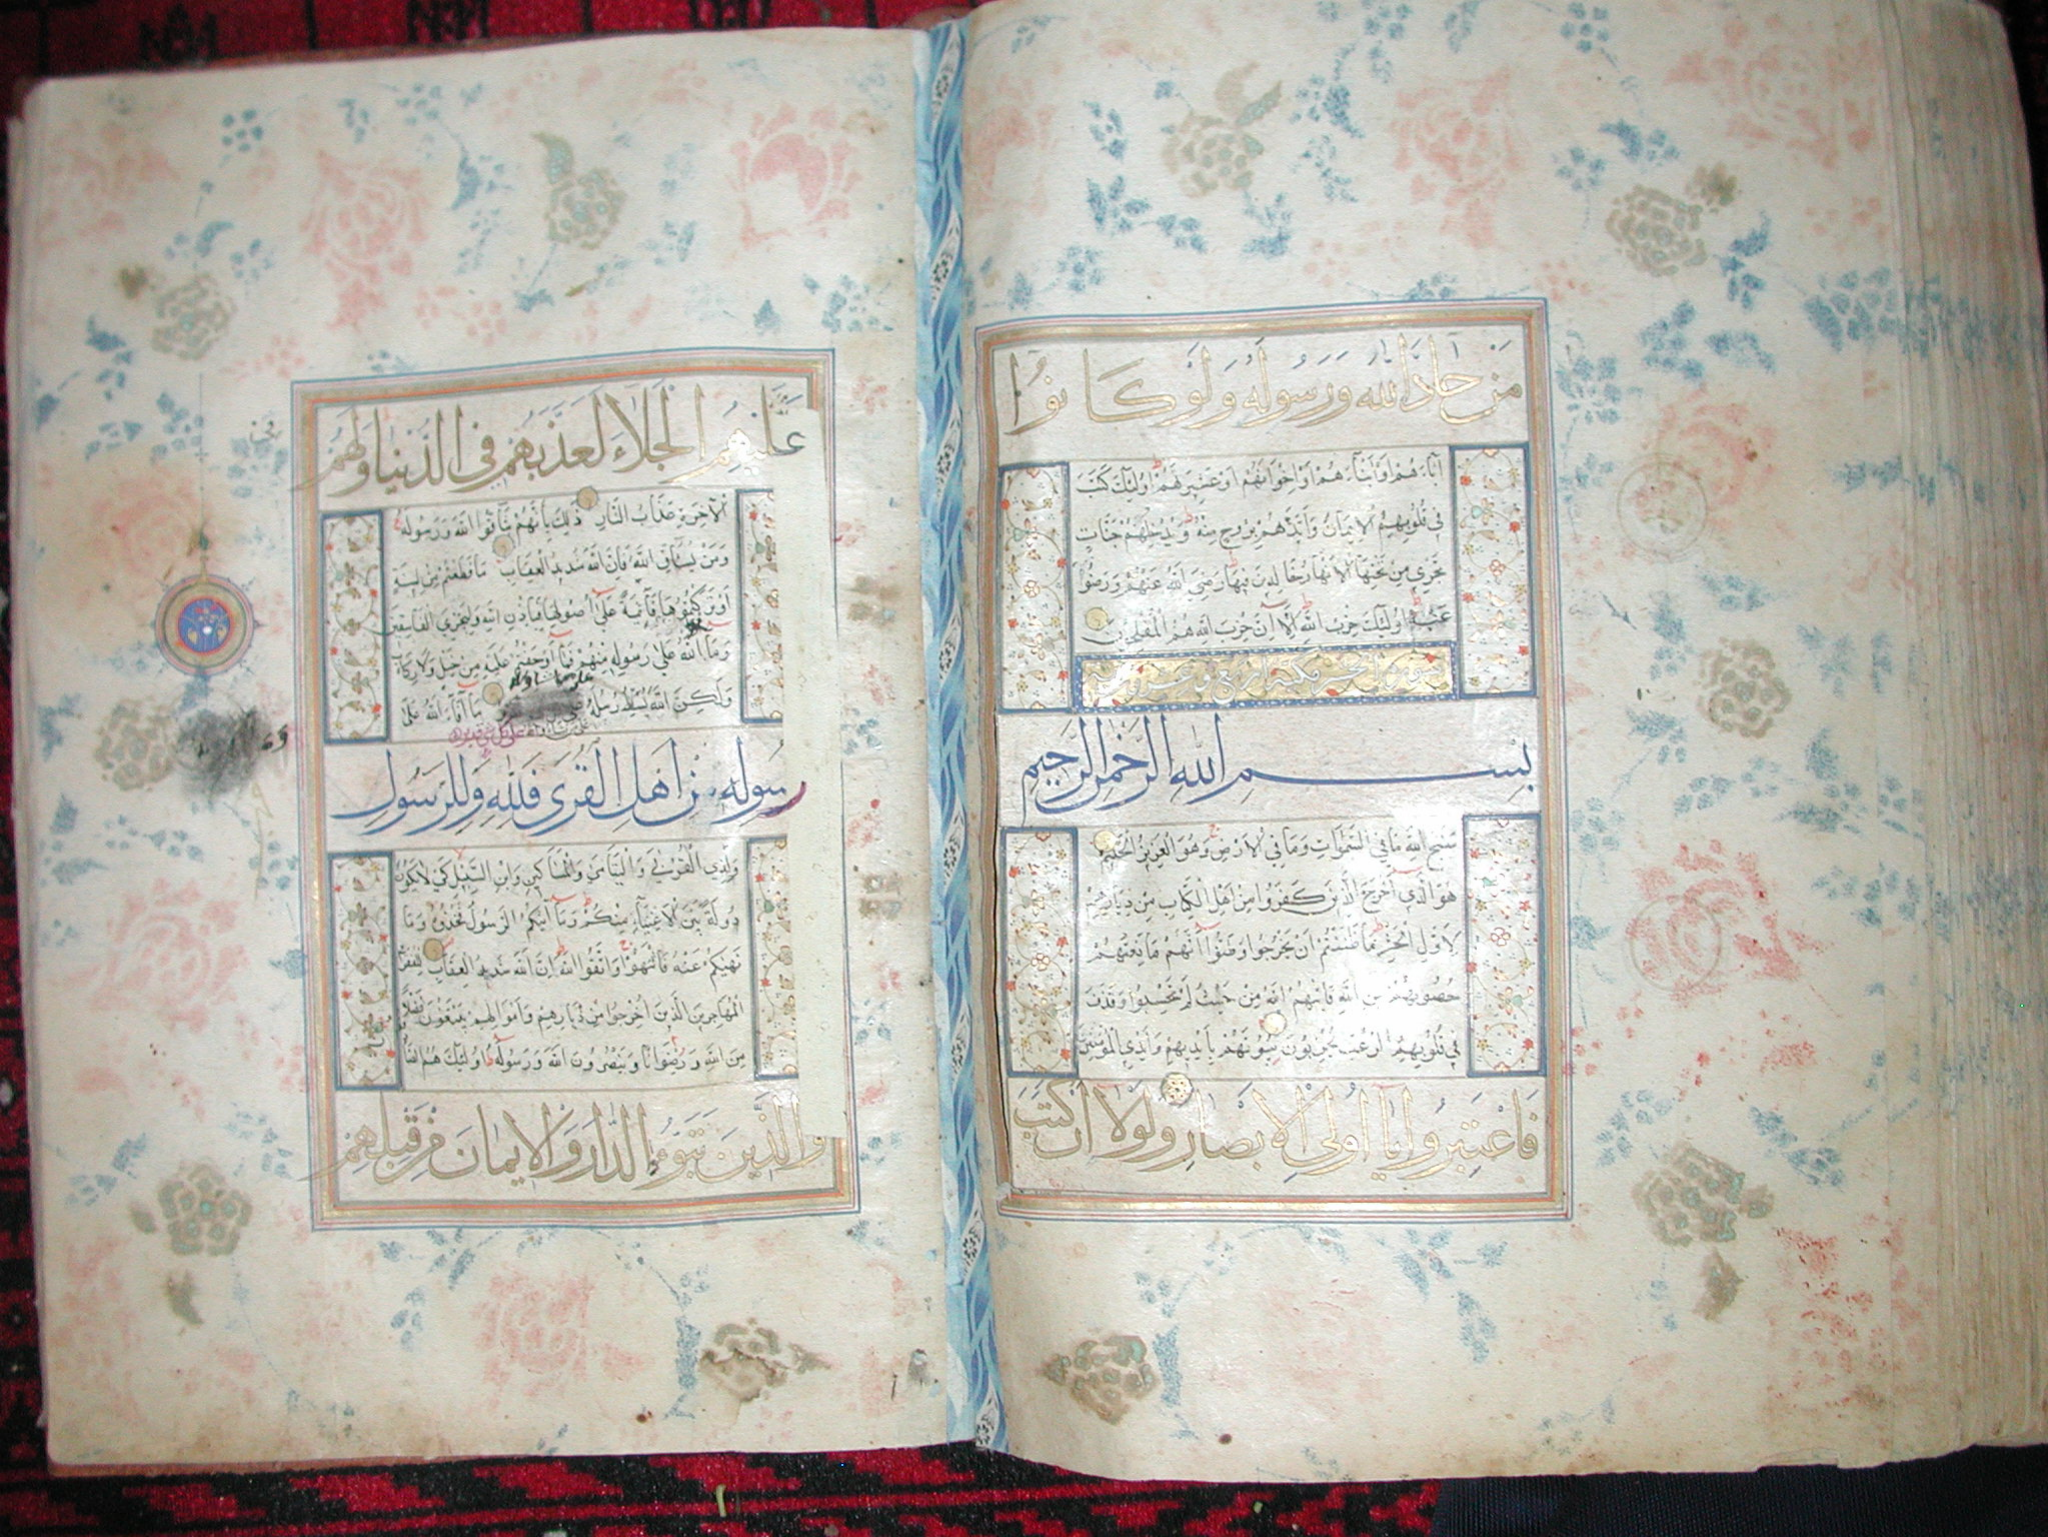 مَنْ حَادَّ اللهَ وَرَسُولَهُ وَلَوْ كَانُوا
آبَاءَهُمْ أَوْ أَبْنَاءَهُمْ أَوْ إِخْوَانَهُمْ أَوْ عَشِيرَتَهُمْ أُولَئِكَ كَتَبَ
فِي قُلُوبِهِمُ الْإِيمَانَ وَأَيَّدَهُمْ بِرُوحٍ مِنْهُ وَيُدْخِلُهُمْ جَنَّاتٍ
تَجْرِي مِنْ تَحْتِهَا الْأَنْهَارُ خَالِدِينَ فِيهَا رَضِيَ اللهُ عَنْهُمْ وَرَضُوا
عَنْهُ أُولَئِكَ حِزْبُ اللهِ أَلَا إِنَّ حِزْبَ اللهِ هُمُ الْمُفْلِحُونَ
سورة الحشر
بِسْمِ اللهِ الرَّحْمَنِ الرَّحِيمِ
سَبَّحَ لِلَّهِ مَا فِي السَّمَوَاتِ وَمَا فِي الْأَرْضِ وَهُوَ الْعَزِيزُ الْحَكِيمُ
هُوَ الَّذِي أَخْرَجَ الَّذِينَ كَفَرُوا مِنْ أَهْلِ الْكِتَابِ مِنْ دِيَارِهِمْ
لِأَوَّلِ الْحَشْرِ مَا ظَنَنْتُمْ أَنْ يَخْرُجُوا وَظَنُّوا أَنَّهُمْ مَانِعَتُهُمْ
حُصُونُهُمْ مِنَ اللهِ فَأَتَيهُمُ اللهُ مِنْ حَيْثُ لَمْ يَحْتَسِبُوا وَقَذَفَ
فِي قُلُوبِهِمُ الرُّعْبَ يُخْرِبُونَ بُيُوتَهُمْ بِأَيْدِيهِمْ وَأَيْدِي الْمُؤْمِنِينَ
فَاعْتَبِرُوا يَا أُولِي الْأَبْصَارِ وَلَوْلَا أَنْ كَتَبَ
عَلَيْهِمُ الْجَلَاءَ لَعَذَّبَهُمْ فِي الدُّنْيَا وَلَهُمْ
الْآخِرَةِ عَذَابُ النَّارِ ذَلِكَ بِأَنَّهُمْ شَاقُّوا اللهَ وَرَسُولَهُ
وَمَنْ يُشَاقِّ اللهَ فَإِنَّ اللهَ شَدِيدُ الْعِقَابِ مَا قَطَعْتُمْ مِنْ لِينَةٍ
أَوْ تَرَكْتُمُوهَا قَائِمَةً عَلَى أُصُولِهَا فَبِإِذْنِ اللهِ وَلِيُخْزِيَ الْفَاسِقِينَ
وَمَا اللهُ عَلَى رَسُولِهِ مِنْهُمْ فَمَا أَوْجَفْتُمْ عَلَيْهِ مِنْ خَيْلٍ وَلَا رِكَابٍ
وَلَكِنَّ اللهَ يُسَلِّطُ رُسُلَهُ مَا أَفَاءَ اللهُ عَلَى
رَسُولِهِ مِنْ أَهْلِ الْقُرَى فَلِلَّهِ وَلِلرَّسُولِ
وَلِذِي الْقُرْبَى وَالْيَتَامَى وَالْمَسَاكِينِ وَابْنِ السَّبِيلِ كَيْ لَا يَكُونَ
دُولَةً بَيْنَ الْأَغْنِيَاءِ مِنْكُمْ وَمَا آتَيكُمُ الرَّسُولُ فَخُذُوهُ وَمَا
نَهَيكُمْ عَنْهُ فَانْتَهُوا وَاتَّقُوا اللهَ إِنَّ اللهَ شَدِيدُ الْعِقَابِ لِلْفُقَرَاءِ
الْمُهَاجِرِينَ الَّذِينَ أُخْرِجُوا مِنْ دِيَارِهِمْ وَأَمْوَالِهِمْ يَبْتَغُونَ فَضْلًا
مِنَ اللهِ وَرِضْوَانًا وَيَنْصُرُونَ اللهَ وَرَسُولَهُ أُولَئِكَ هُمُ
وَالَّذِينَ تَبَوَّءُوا الدَّارَ وَالْإِيمَانَ مِنْ قَبْلِهِمْ